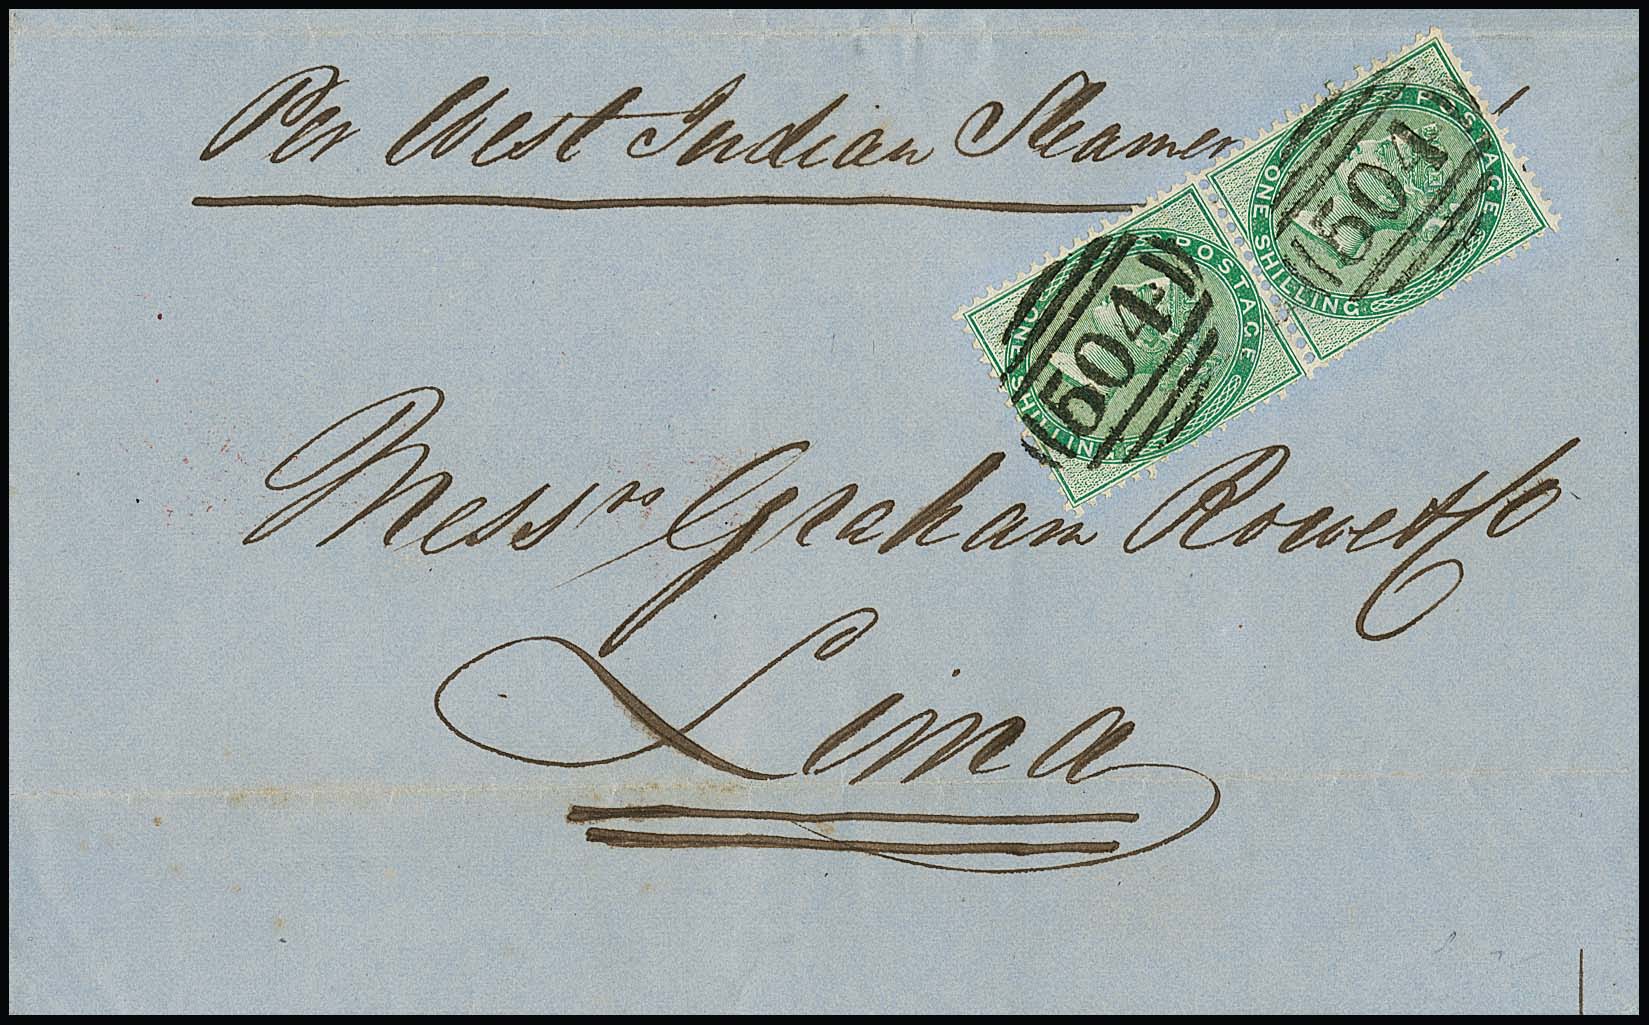 Per West Indian Steamer
POSTAGE
ONE SHILLING
504
POSTAGE
ONE SHILLING
504
Messrs Graham Rowe & Co
Lima